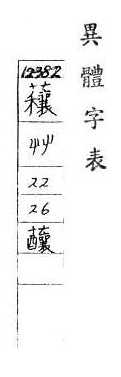 異體字表
12382
艸
22
26
釀